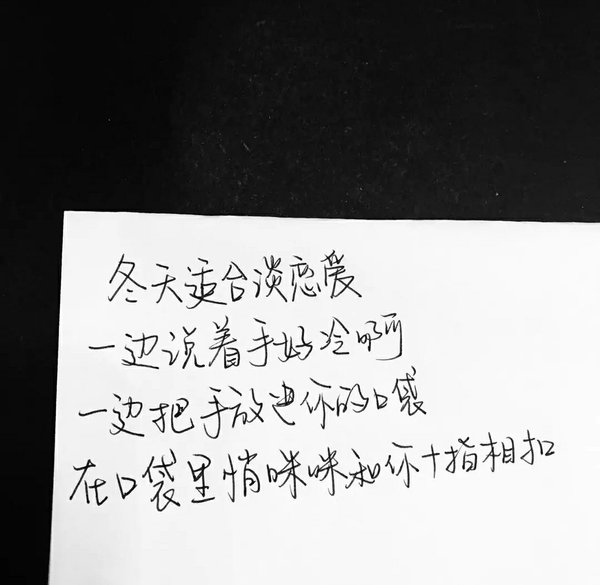 冬天适合谈恋爱
一边说着手好冷啊
一边把手放进你的口袋
在口袋里悄咪咪和你十指相扣